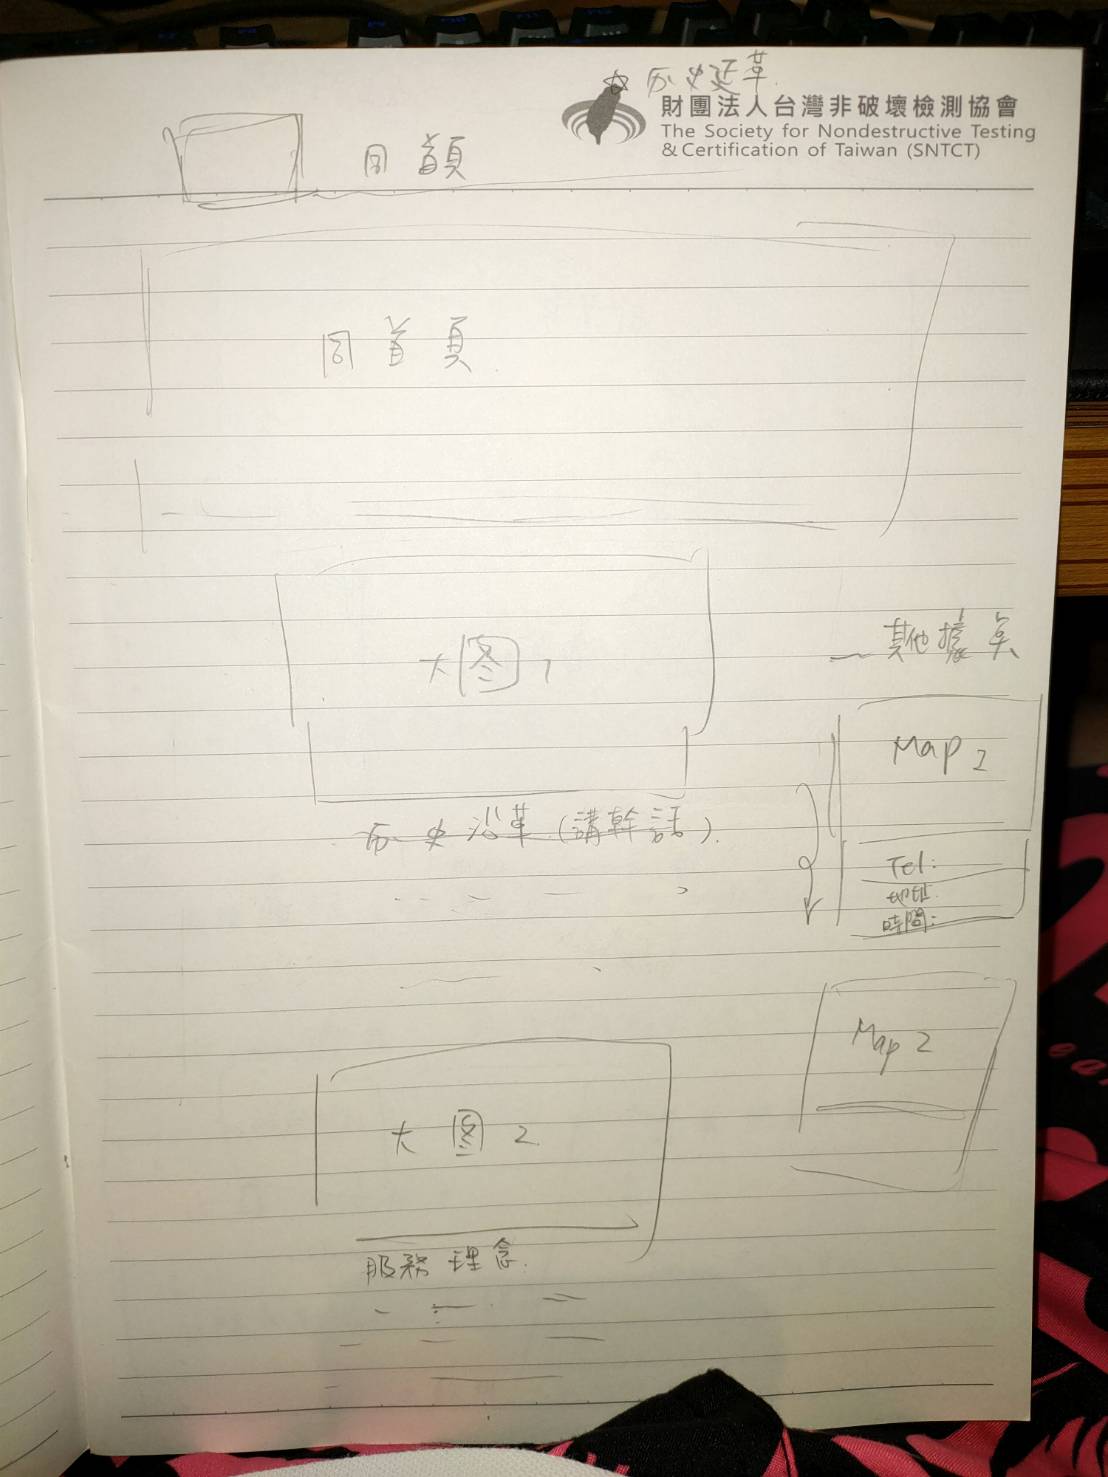 历史延革
財團法人台灣非破壞檢測協會
The Society for Nondestructive Testing
& Certification of Taiwan (SNTCT)
同首頁
同首頁
大图1
历史沿革(講幹話).
其他據点
Map 1
Tel:
地址.
時間:
Map 2
大图2
服務理念.